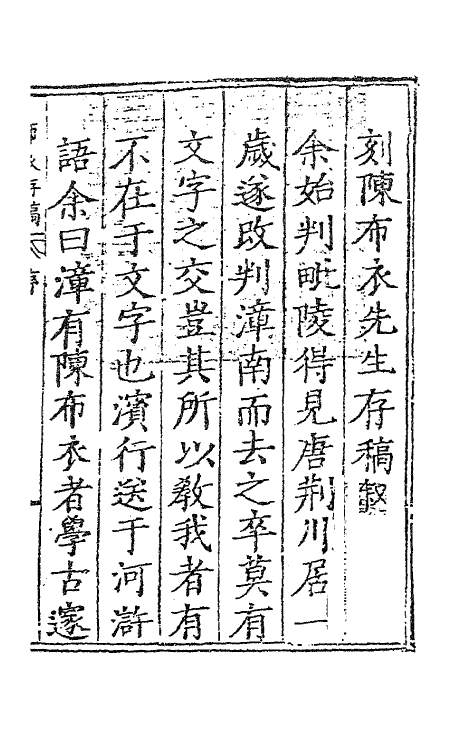 刻陳布衣先生存稿叙
余始判毗陵得見唐荆川居一
歲遂改判漳南而去之卒莫有
文字之交豈其所以教我者有
不在于文字也濱行送于河滸
語余曰漳有陳布衣者學古邃
布衣存稿 序 一